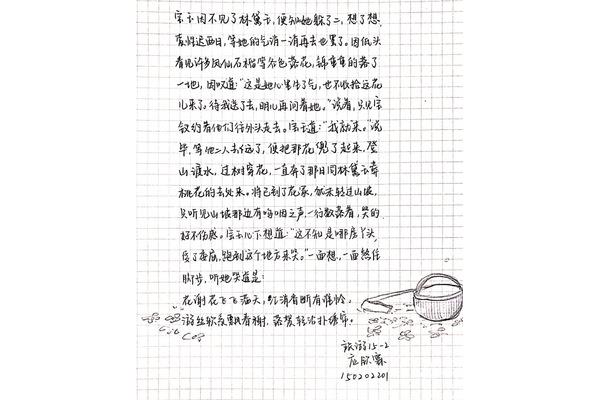 宝玉因不见了林黛玉,便知她躲了二,想了想,
索性迟两日,等她的气消一消再去也罢了。因低头
看见许多凤仙石榴等各色落花,锦重重的落了
一地,因叹道:“这是她心里生了气,也不收拾这花
儿来了。待我送了去,明儿再问着她。”说着,只见宝
钗约着他们往外头走去。宝玉道:“我就来。”说
毕,等他二人去远了,便把那花兜了起来,登
山渡水,过树穿花,一直奔了那日同林黛玉葬
桃花的去处来。将已到了花冢,犹未转过山坡,
只听见山坡那边有呜咽之声,一行数落着,哭的
好不伤感。宝玉心下想道:“这不知是哪房丫头,
受了委屈,跑到这个地方来哭。”一面想,一面煞住
脚步,听她哭道是:
花谢花飞飞满天,红消香断有谁怜。
游丝软系飘春榭,落絮轻沾扑绣帘。
旅游15-2
应欣
150202201